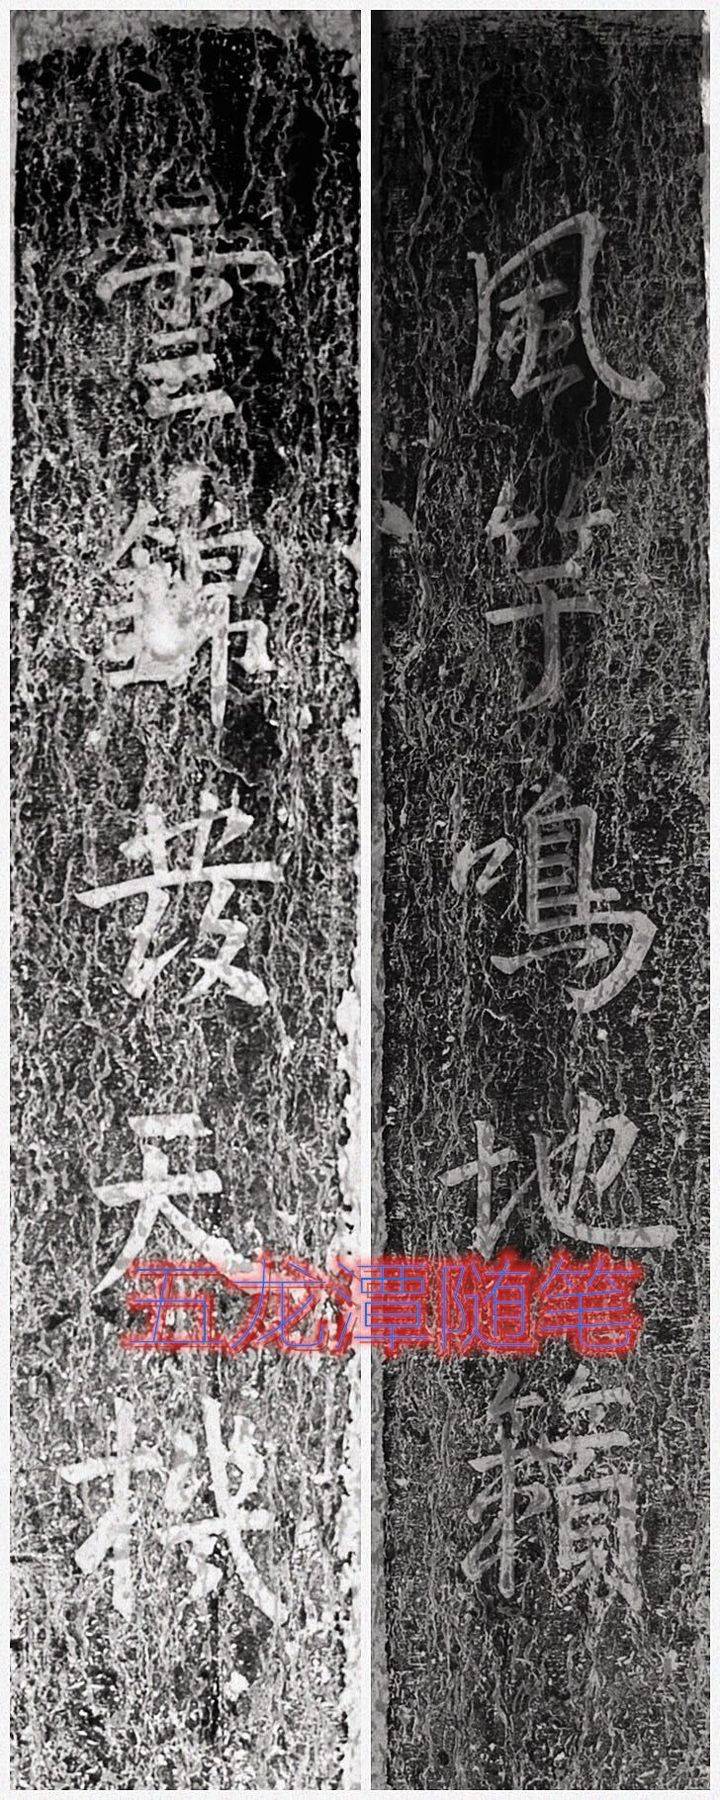 風竽鳴地籟
雲錦發天機
五龙潭随笔